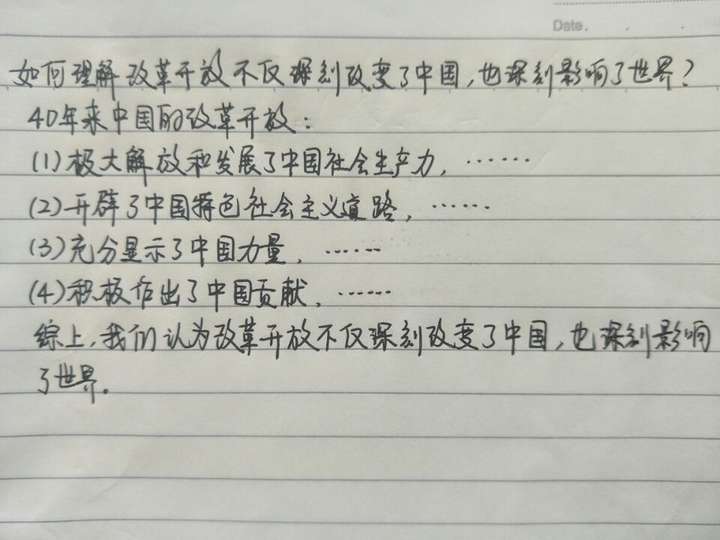 Date.
如何理解改革开放不仅深刻改变了中国,也深刻影响了世界?
40年来中国的改革开放:
(1)极大解放和发展了中国社会生产力,……
(2)开辟了中国特色社会主义道路,……
(3)充分显示了中国力量,……
(4)积极作出了中国贡献,……
综上,我们认为改革开放不仅深刻改变了中国,也深刻影响
了世界。